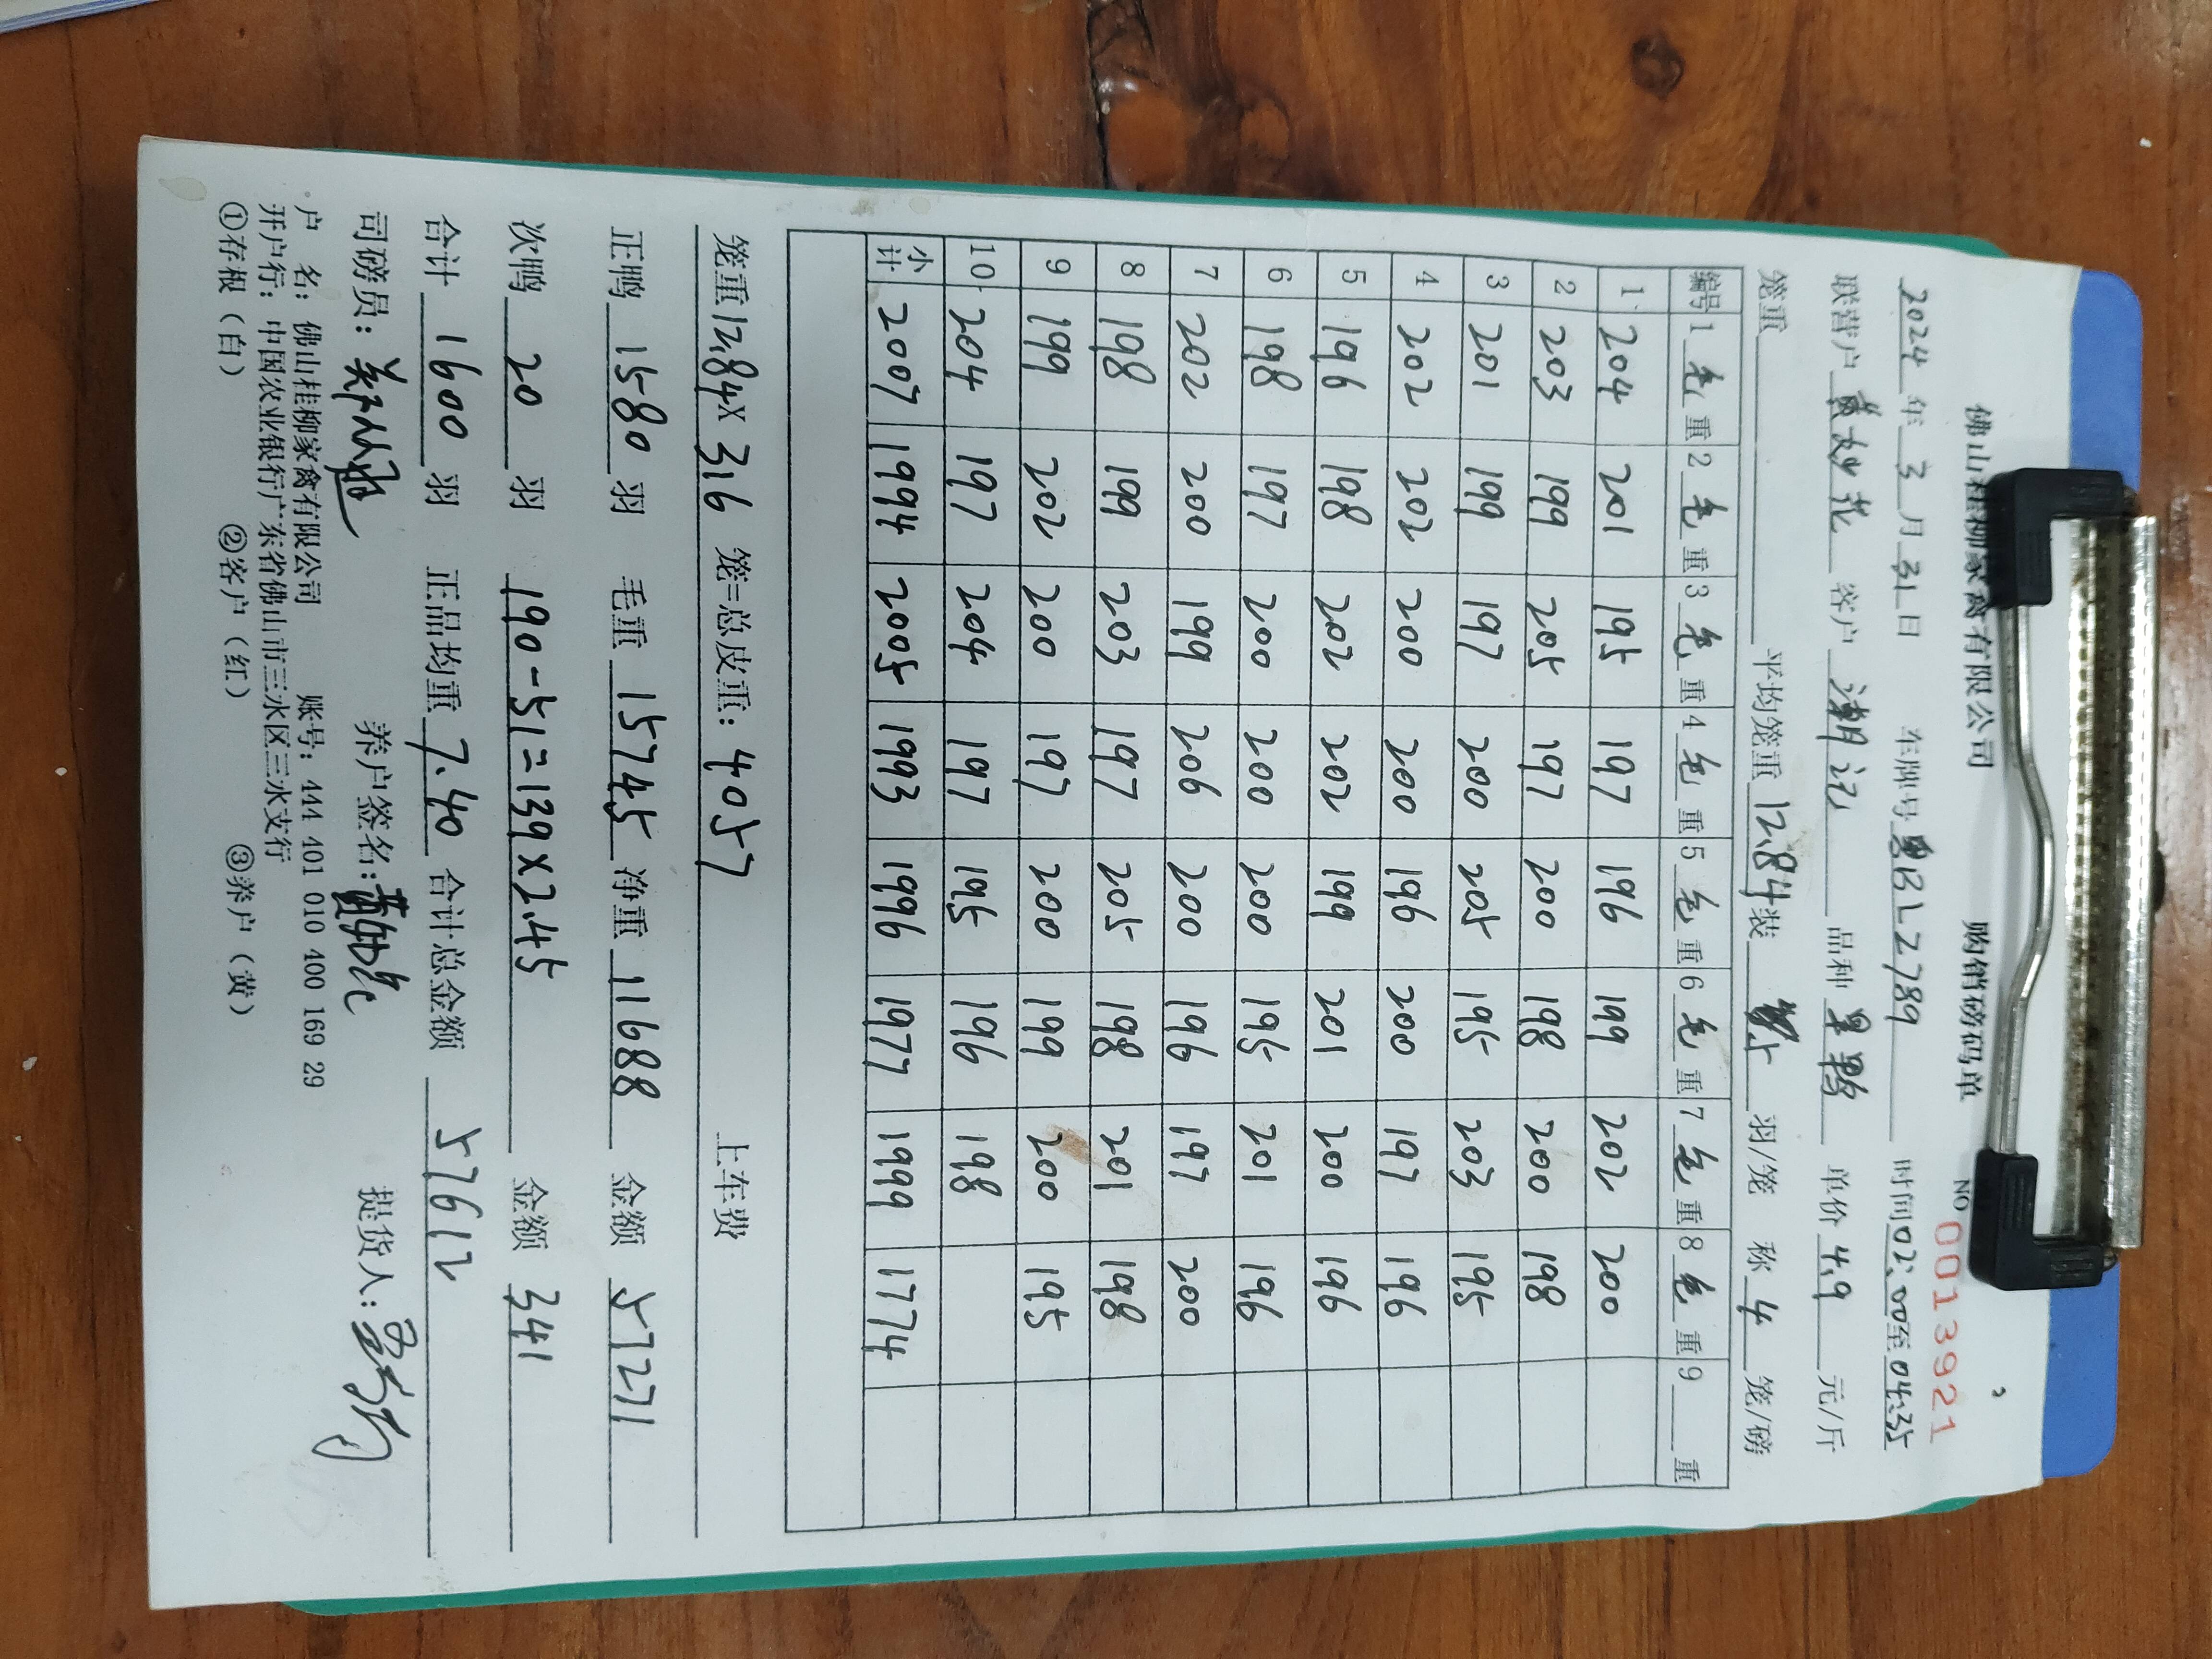 佛山桂柳家禽有限公司 购销磅码单 NO 0013921
2024年3月31日 车牌号 粤BL2789 时间02:00至04:35
联营户 黄妙花 客户 潮记 品种 单价 4.9 元/斤
笼重 平均笼重 12.84 装 5 羽/笼 称 4 笼/磅
编号 1 毛重 2 毛重 3 毛重 4 毛重 5 毛重 6 毛重 7 毛重 8 毛重 9 重
1 204 201 195 197 196 199 202 200
2 203 199 205 197 200 198 200 198
3 201 199 197 200 205 195 203 195
4 202 202 200 200 196 200 197 196
5 196 198 202 202 199 201 200 196
6 198 197 200 200 200 195 201 196
7 202 200 199 206 200 196 197 200
8 198 199 203 197 205 198 201 198
9 199 202 200 197 200 199 200 195
10 204 197 204 197 195 196 198
小计 2007 1994 2005 1993 1996 1977 1999 1774
笼重12.84× 316 笼=总皮重: 4057 上车费
正鸭 1580 羽 毛重 15745 净重 11688 金额 57271
次鸭 20 羽 190-51=139×2.45 金额 341
合计 1600 羽 正品均重 7.40 合计总金额 57612
司磅员: 养户签名: 黄妙花 提货人:
户 名: 佛山桂柳家禽有限公司 账号: 444 401 010 400 169 29
开户行: 中国农业银行广东省佛山市三水区三水支行
①存根（白） ②客户（红） ③养户（黄）